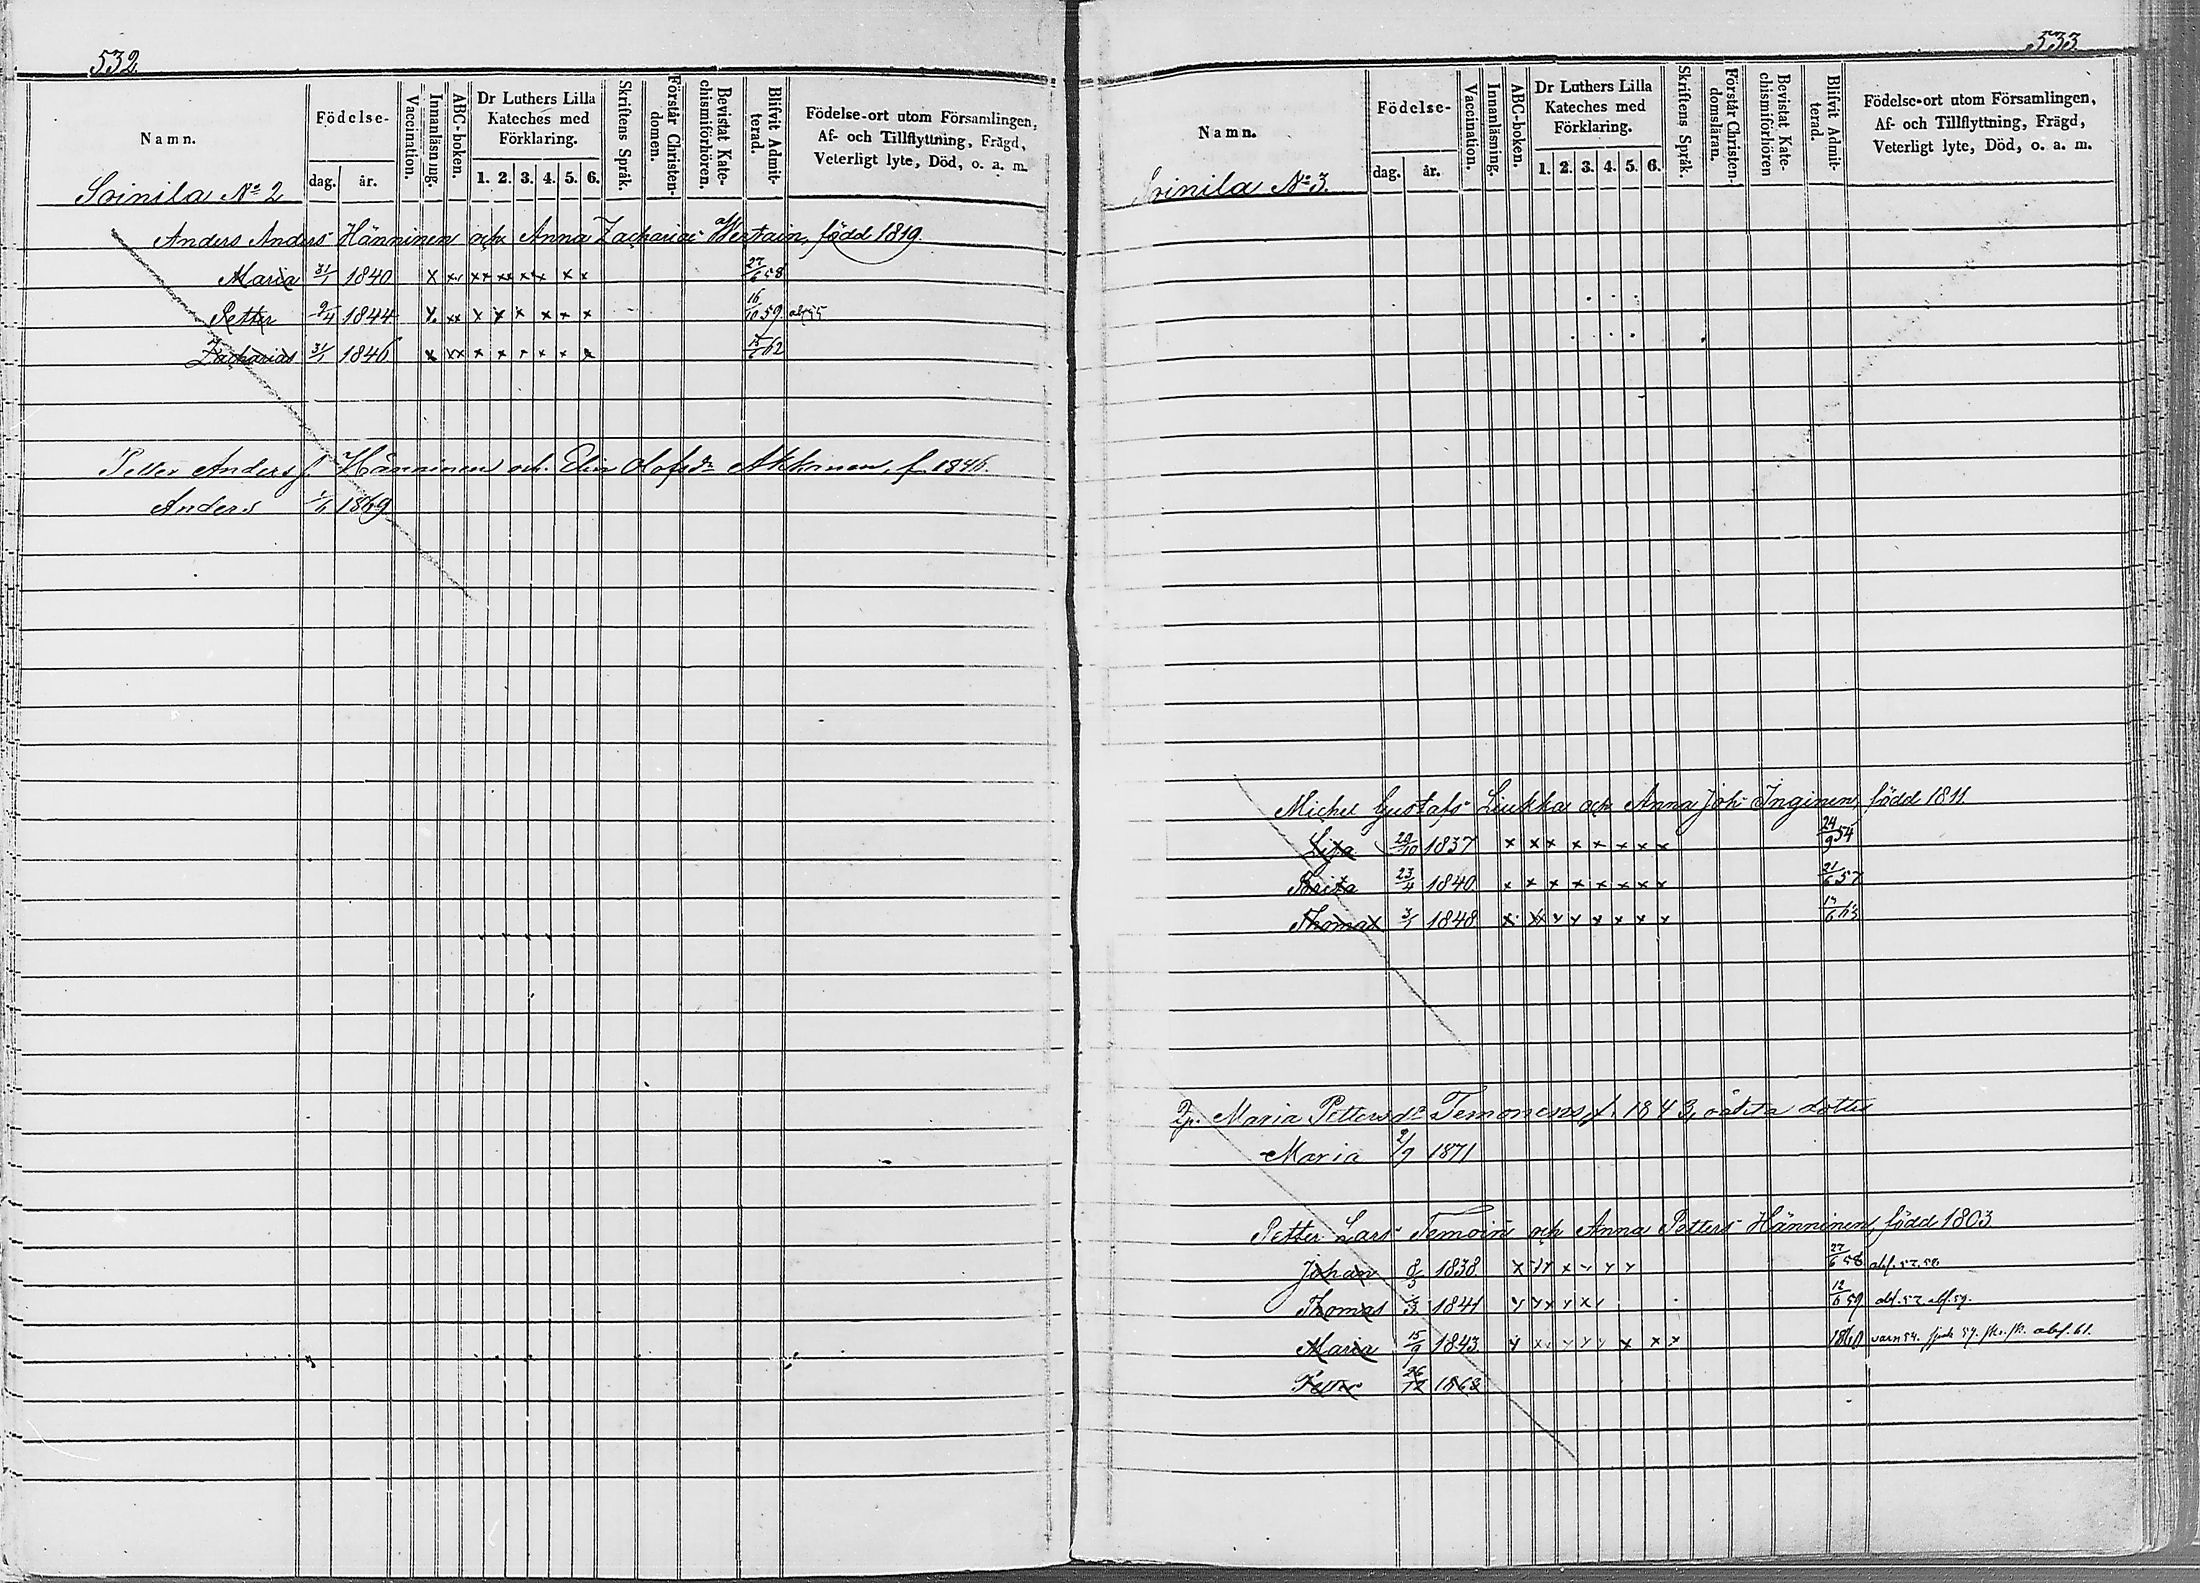 532
Namn.
Födelse-
dag. år.
Vaccination.
Innanläsning.
ABC-boken.
Dr Luthers Lilla
Kateches med
Förklaring.
1. 2. 3. 4. 5. 6.
Skriftens Språk.
Förstår Christen-
domen.
Bevistat Kate-
chismiförhören.
Blifvit Admit-
terad.
Födelse-ort utom Församlingen,
Af- och Tillflyttning, Frägd,
Veterligt lyte, Död, o. a. m.
Soinila No 2
Anders Anders Hänninen och Anna Zacharias Wertain, född 1819.
Maria 31/1 1840 x x x x x x x x 27/6 58
Petter 9/4 1844 x xx x x x x x x 16/10 59.
Zacharias 31/1 1846 x xx x x x x x x 15/6 62
Petter Anders f. Hänninen och Elin Olofsdr Akkinen, f. 1846.
Anders 1/6 1869
533
Namn.
Födelse-
dag. år.
Vaccination.
Innanläsning.
ABC-boken.
Dr Luthers Lilla
Kateches med
Förklaring.
1. 2. 3. 4. 5. 6.
Skriftens Språk.
Förstår Christen-
domsläran.
Bevistat Kate-
chismiförhören
Blifvit Admit-
terad.
Födelse-ort utom Församlingen,
Af- och Tillflyttning, Frägd,
Veterligt lyte, Död, o. a. m.
Soinila No 3.
Michel Gustafs Liukka och Anna Joh. Inginen, född 1811.
Lisa 29/10 1837 x x x x x x x x 24/9 54
Brita 23/4 1840 x x x x x x x x 21/6 57
Thomas 3/1 1848 x x x x x x x x 6 63
Maria Pettersdr Temonen, f. 1843, oäkta dotter
Maria 2/9 1871
Petter Lars Temoin och Anna Petters Hänninen, född 1803
Johan 1838 x x x x x x 27/6 58 abs. 57. 58.
Thomas 1841 x x x x x 12/6 59 abs. 57. abs. 59.
Maria 15/9 1843 x x x x x x x x 1860 varn 54. abs. 61.
Petter 26/12 1868